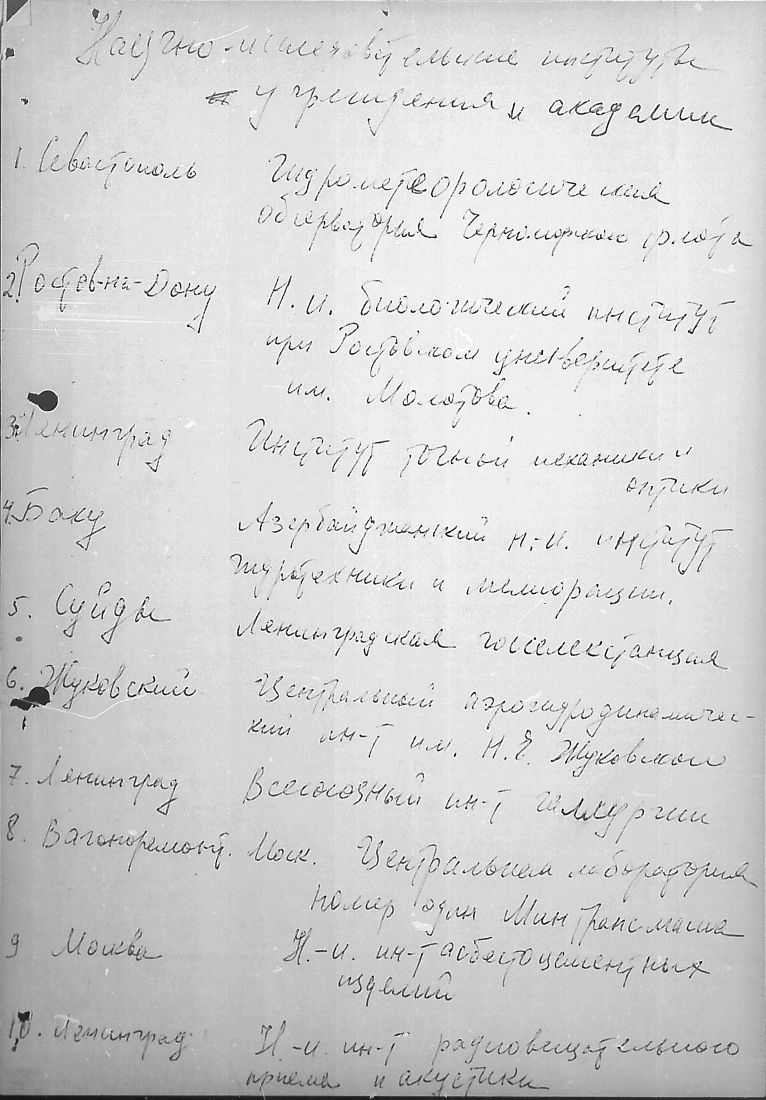 Научно-исследовательские институты
учреждения и академии
1. Севастополь Гидрометеорологическая
обсерватория Черноморского флота
2. Ростов-на-Дону Н. и. биологический институт
при Ростовском университете
им. Молотова.
3. Ленинград Институт точной механики и
оптики
4. Баку Азербайджанский н.-и. институт
гидротехники и мелиорации.
5. Суйды Ленинградская госселекстанция
6. Жуковский Центральный аэрогидродинамичес-
кий ин-т им. Н.Е. Жуковского
7. Ленинград Всесоюзный ин-т галлургии
8. Вагоноремонт. Моск. Центральная лаборатория
номер один Минтрансмаша
9 Москва Н.-и. ин-т асбестоцементных
изделий
10. Ленинград Н.-и. ин-т радиовещательного
приема и акустики